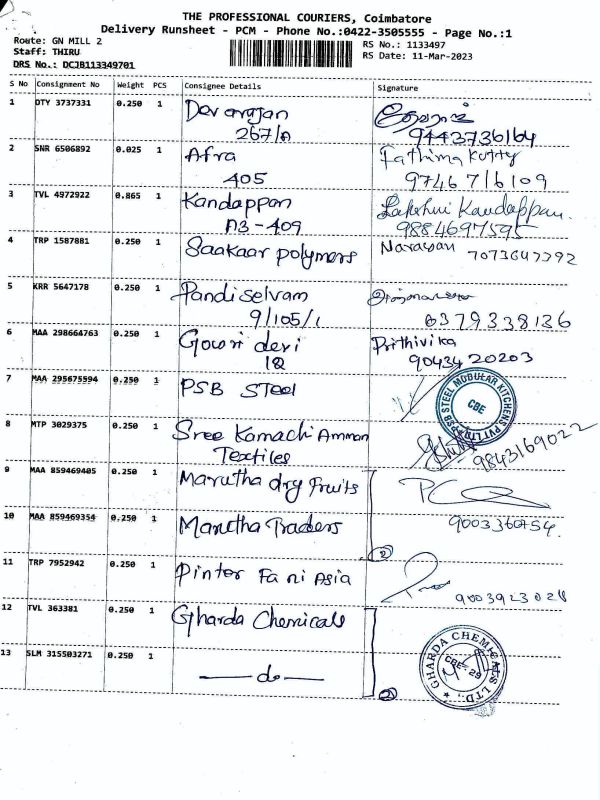 THE PROFESSIONAL COURIERS, Coimbatore
Delivery Runsheet - PCM - Phone No.:0422-3505555 - Page No.:1
Route: GN MILL 2
Staff: THIRU
DRS No.: DCJB113349701
RS No.: 1133497
RS Date: 11-Mar-2023
S No Consignment No Weight PCS Consignee Details Signature
1 DTY 3737331 0.250 1 Devarajan
267/A 9443736164
2 SNR 6506892 0.025 1 Afra Fathima Kutty
405 9746716109
3 TVL 4972922 0.865 1 Kandappan Lakshmi Kandappan.
A3-409 9884697595
4 TRP 1587881 0.250 1 Saakaar polymers Narayan
5 KRR 5647178 0.250 1 Pandiselvam
9/105/1 6379338136
6 MAA 298664763 0.250 1 Gowri devi Prithivika
90434 20203
7 MAA 295675594 0.250 1 PSB STeel
PSB STEEL MODULAR KITCHENS PVT LTD
CBE
8 MTP 3029375 0.250 1 Sree Kamachi Amman
Textiles 9843169022
9 MAA 859469405 0.250 1 Marutha dry Fruits
10 MAA 859469354 0.250 1 Marutha Traders
2
11 TRP 7952942 0.250 1 Pinter Fa ni Asia
12 TVL 363381 0.250 1 Gharda Chemicals
13 SLM 315503271 0.250 1 —do—
2
GHARDA CHEMICALS LTD.,
CBE-29